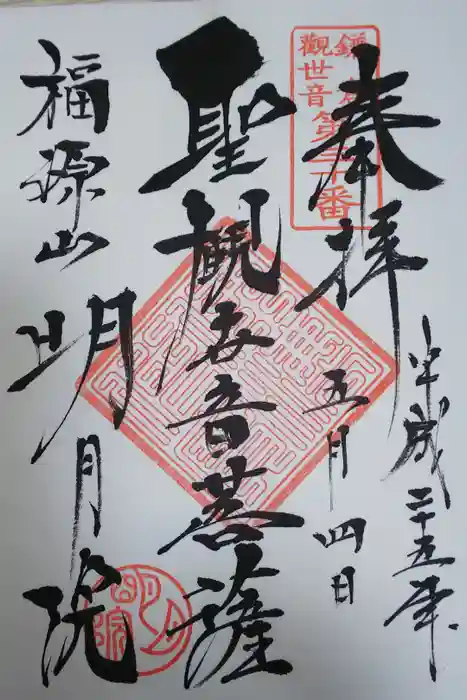 奉拝
平成二十五年
五月四日
鎌倉
觀世音
第三十番
聖観世音菩薩
福源山
明月院
明月院